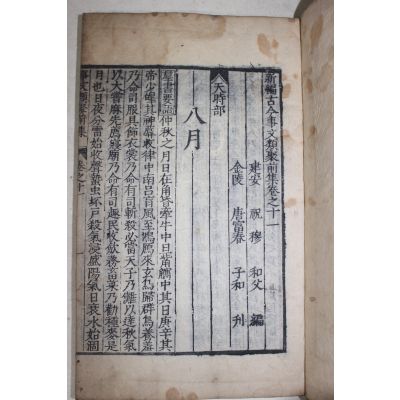 新編古今事文類聚前集卷之十一
建安 祝穆 和父 編
金陵 唐富春 子和 刊
天時部
八月
群書要語仲秋之月日在角昏牽牛中旦觜觿中其日庚辛其
帝少皞其神蓐收律中南呂盲風至鴻鴈來玄鳥歸群鳥養羞
乃命司服具飭衣裳乃命有司斬殺必當天子乃儺以達秋氣
以犬嘗麻先薦寢廟乃命有司趣民收斂務畜菜乃勸種麥是
月也日夜分雷始收聲蟄虫坏戶殺氣浸盛陽氣日衰水始涸
事文類聚前集 卷之十一